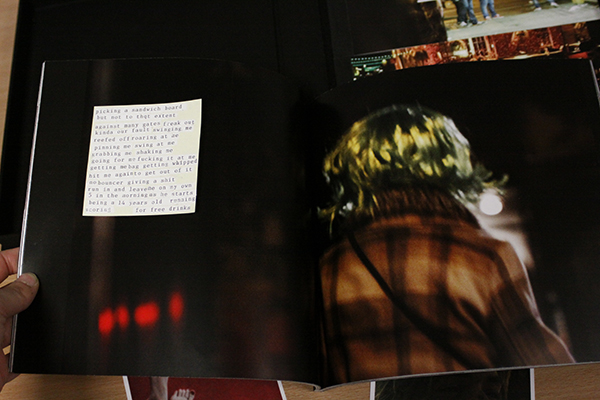 picking a sandwich board
but not to that extent
against many gates freak out
kinda our fault swinging me
reefed off roaring at me
pinning me swing at me
grabbing me shaking me
going for my fucking if at me
getting me bag getting whipped
hit me again to get out of it
no bouncer giving a shit
run in and leave me on my own
5 in the morning as he starts
being a 14 years old running
for free drinks